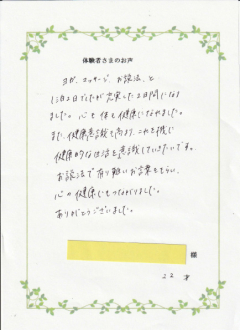 体験者さまのお声
ヨガ、マッサージ、お説法、と
1泊2日でしたが充実した2日間になり
ました。心も体も健康になれました。
また、健康意識も高まり、これを機に
健康的な生活を意識していきたいです。
お説法で有り難いお言葉をもらい、
心の健康にもつながりました。
ありがとうございました。
様
22才